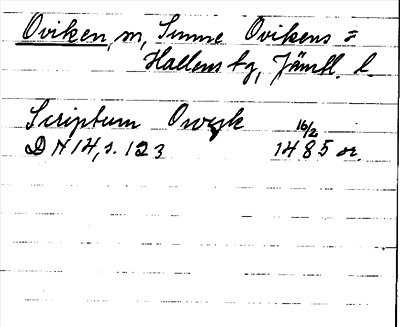 Oviken, m, Sunne Ovikens =
Hallens tg, Jämtl. l.
Scriptum Owyk 16/2
DN 14, s. 123 1485 or.